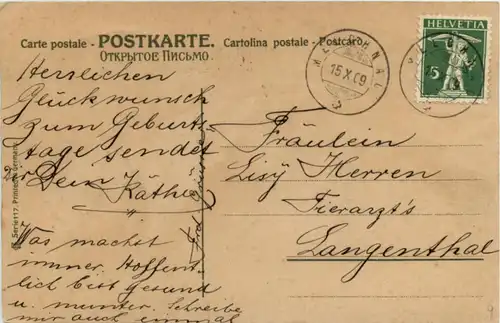 Carte postale - POSTKARTE. Cartolina postale - Postcard
ОТКРЫТОЕ ПИСЬМО.
HELVETIA
5
15 X 09
Herzlichen
Glückwunsch
zum Geburts
tage sendet
Dir Dein Käthe
Was machst
immer. Hoffent
lich bist gesund
u. munter. Schreibe
mir auch einmal
Fräulein
Lisÿ Herren
Tierarzt's
Langenthal
Serie 117. Printed in Germany